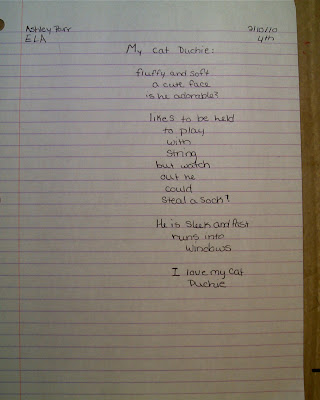 Ashley Parr 2/10/10
ELA 4th
My cat Duchie:
fluffy and soft
a cute face
is he adorable?
likes to be held
to play
with
string
but watch
out he
could
steal a sock!
He is sleek and fast
runs into
windows
I love my cat
Duchie